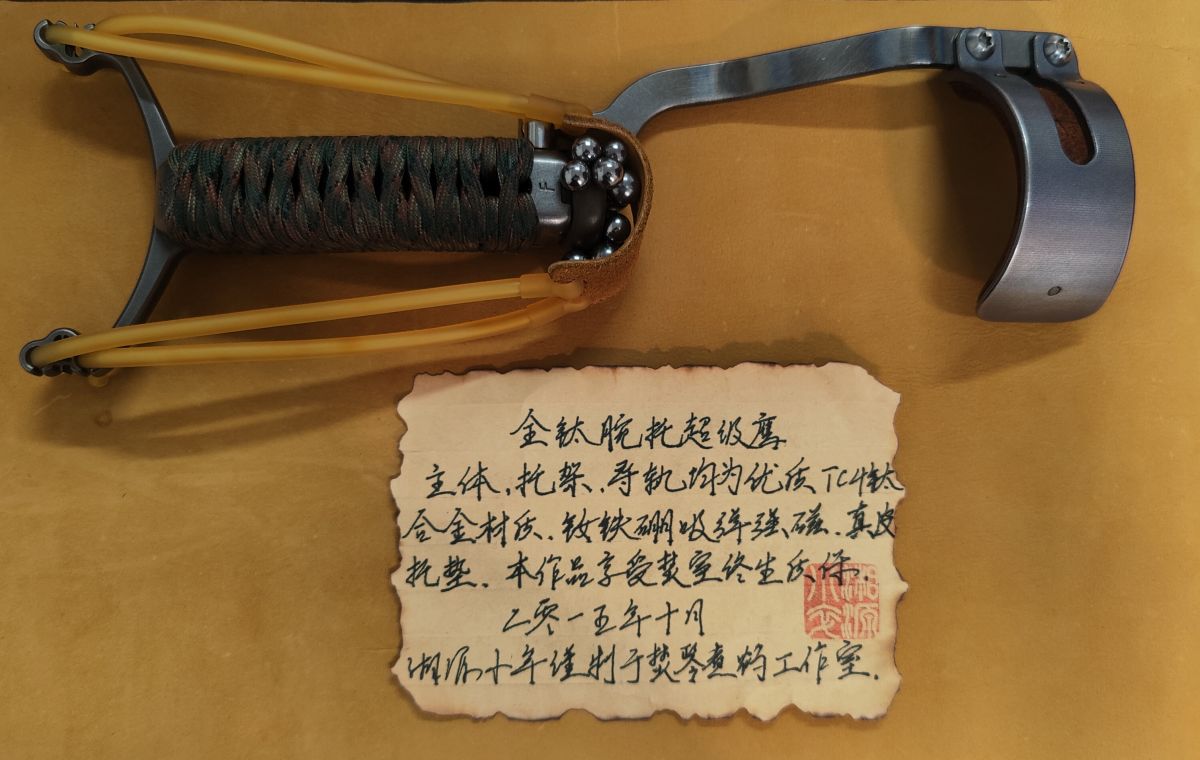 F
全钛腕托超级鹰
主体、托架、导轨均为优质TC4钛
合金材质、钕铁硼吸弹强磁、真皮
托垫、本作品享受焚室终生质保.
二零一五年十月
湘源小年谨制于焚琴煮鹤工作室.